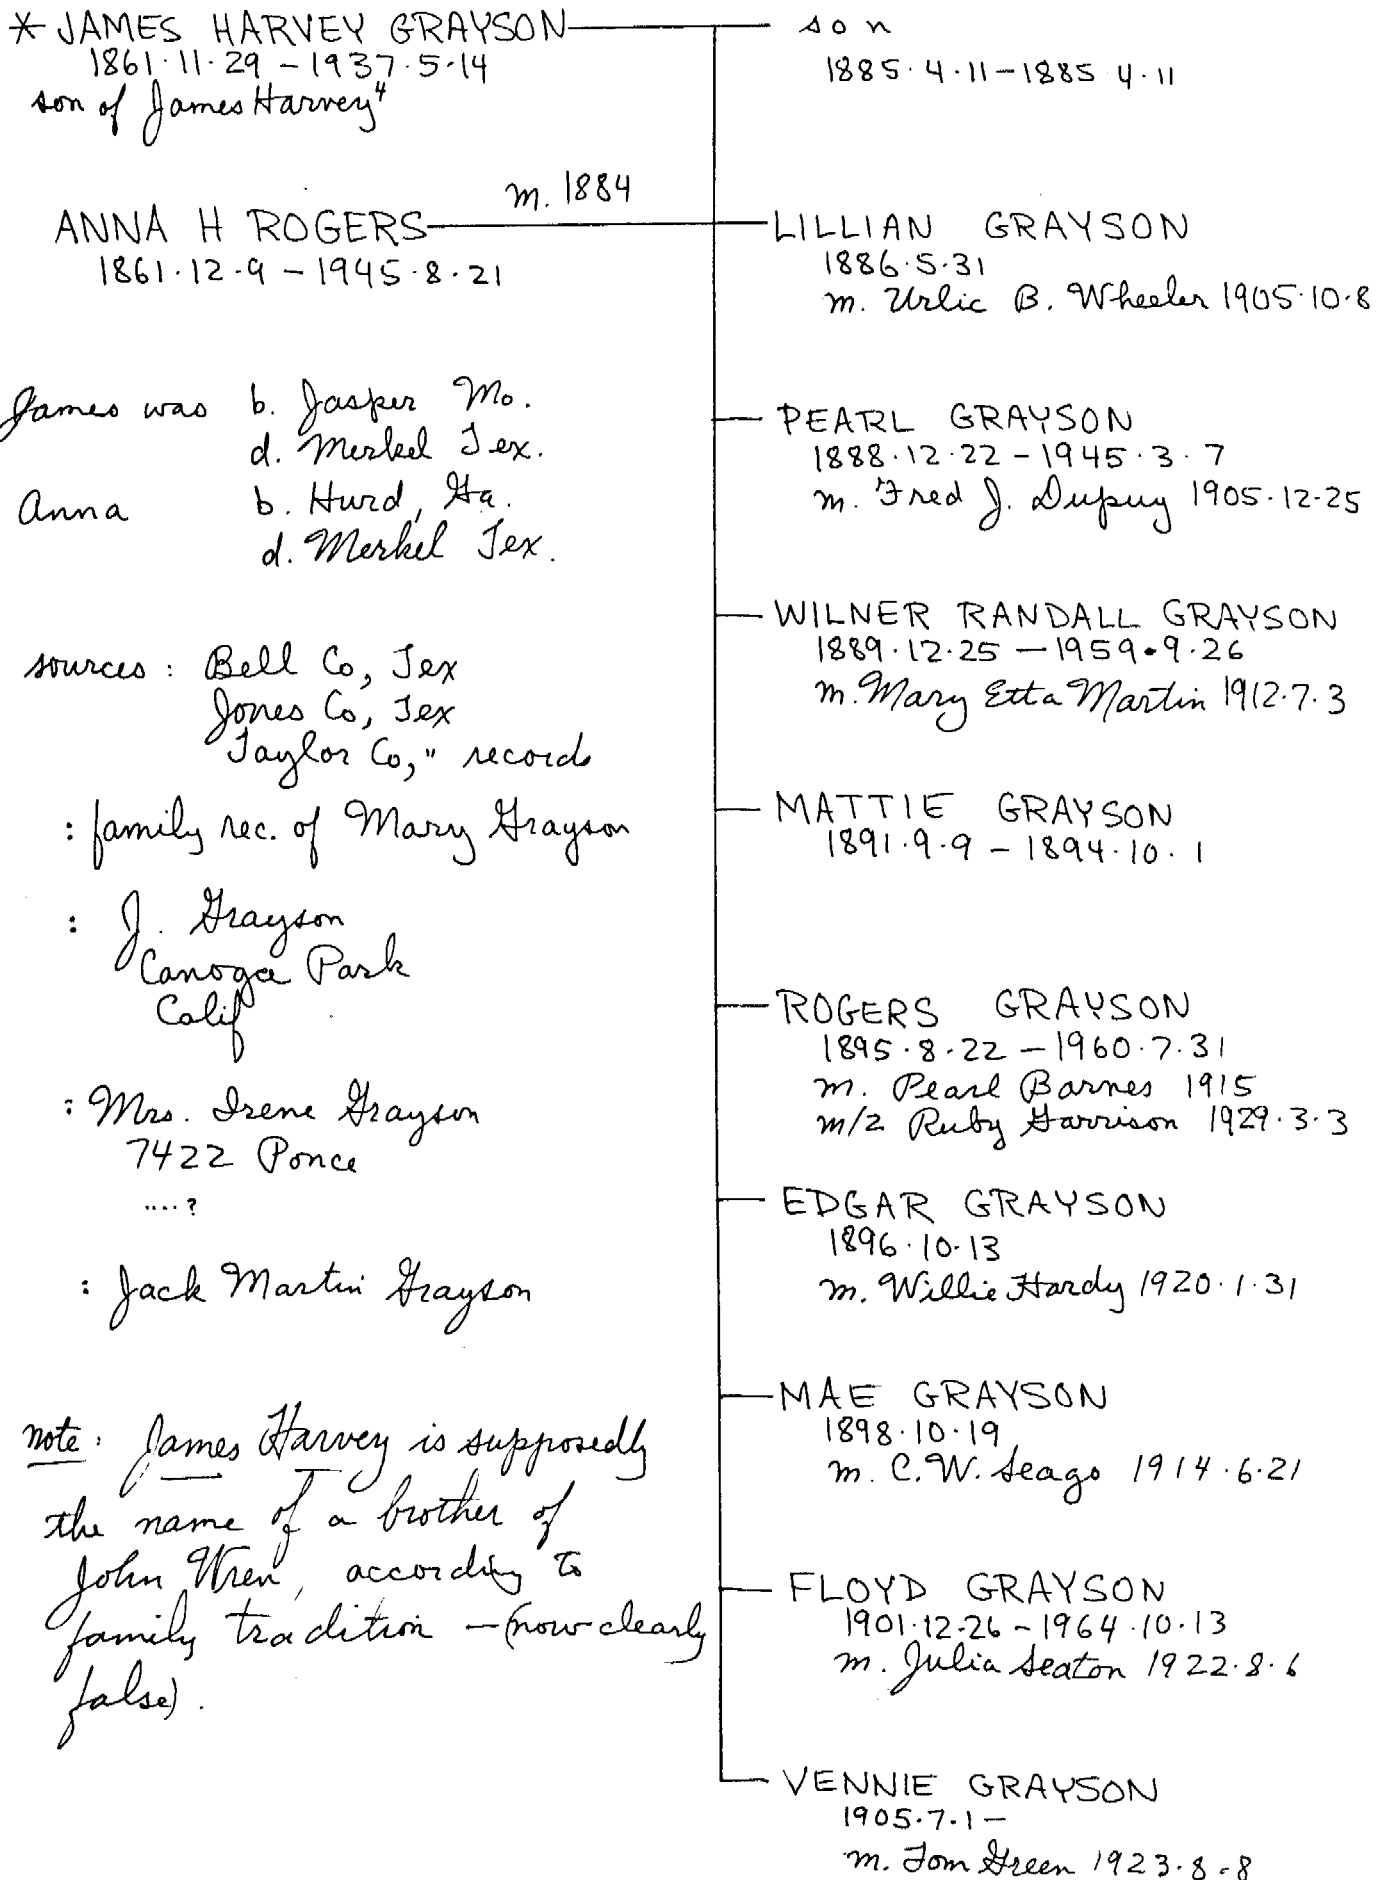 * JAMES HARVEY GRAYSON
1861·11·29 – 1937·5·14
son of James Harvey⁴
m. 1884
ANNA H ROGERS
1861·12·9 – 1945·8·21
James was b. Jasper Mo.
d. Merkel Tex.
Anna b. Hurd, Ga.
d. Merkel Tex.
sources : Bell Co, Tex
Jones Co, Tex
Taylor Co, " records
: family rec. of Mary Grayson
: J. Grayson
Canoga Park
Calif
: Mrs. Irene Grayson
7422 Ponce
....?
: Jack Martin Grayson
note: James Harvey is supposedly
the name of a brother of
John Wren, according to
family tradition – (now clearly
false).
son
1885·4·11–1885 4·11
LILLIAN GRAYSON
1886·5·31
m. Urlic B. Wheeler 1905·10·8
PEARL GRAYSON
1888·12·22 – 1945·3·7
m. Fred J. Dupuy 1905·12·25
WILNER RANDALL GRAYSON
1889·12·25 – 1959·9·26
m. Mary Etta Martin 1912·7·3
MATTIE GRAYSON
1891·9·9 – 1894·10·1
ROGERS GRAYSON
1895·8·22 – 1960·7·31
m. Pearl Barnes 1915
m/2 Ruby Garrison 1929·3·3
EDGAR GRAYSON
1896·10·13
m. Willie Hardy 1920·1·31
MAE GRAYSON
1898·10·19
m. C.W. Seago 1914·6·21
FLOYD GRAYSON
1901·12·26 – 1964·10·13
m. Julia Seaton 1922·8·6
VENNIE GRAYSON
1905·7·1 –
m. Tom Green 1923·8·8